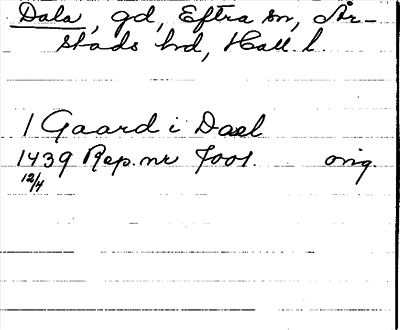 Dala, gd, Eftra sn, År-
stads hd, Hall. l.
1 Gaard i Dael
1439 Rep. nr 7001. orig.
12/4